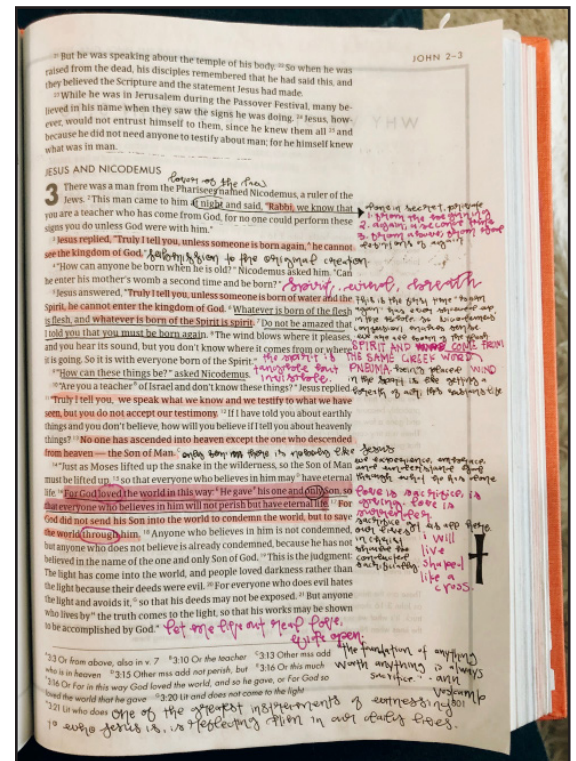 JOHN 2–3
²¹ But he was speaking about the temple of his body. ²² So when he was
raised from the dead, his disciples remembered that he had said this, and
they believed the Scripture and the statement Jesus had made.
²³ While he was in Jerusalem during the Passover Festival, many be-
lieved in his name when they saw the signs he was doing. ²⁴ Jesus, how-
ever, would not entrust himself to them, since he knew them all ²⁵ and
because he did not need anyone to testify about man; for he himself knew
what was in man.
JESUS AND NICODEMUS
lover of the law
3 There was a man from the Pharisees named Nicodemus, a ruler of the
Jews. ² This man came to him at night and said, "Rabbi, we know that
you are a teacher who has come from God, for no one could perform these
signs you do unless God were with him."
done in secret, private
1. from the beginning
2. again, a second time
3. from above, from
³ Jesus replied, "Truly I tell you, unless someone is born again, he cannot
see the kingdom of God." submission to the original creation.
⁴ "How can anyone be born when he is old?" Nicodemus asked him. "Can
he enter his mother's womb a second time and be born?" spirit, wind, breath
⁵ Jesus answered, "Truly I tell you, unless someone is born of water and the
Spirit, he cannot enter the kingdom of God. ⁶ Whatever is born of the flesh
is flesh, and whatever is born of the Spirit is spirit. ⁷ Do not be amazed that
I told you that you must be born again. ⁸ The wind blows where it pleases,
and you hear its sound, but you don't know where it comes from or where
it is going. So it is with everyone born of the Spirit." the spirit is
tangible but
invisible.
this is the first time "born
again" has ever
in the bible. so Nicodemus'
confusion makes sense
SPIRIT AND WIND COME FROM
THE SAME GREEK WORD
PNEUMA. being placed
WIND
in the spirit is like getting a
⁹ "How can these things be?" asked Nicodemus.
¹⁰ "Are you a teacher of Israel and don't know these things?" Jesus replied.
¹¹ "Truly I tell you, we speak what we know and we testify to what we have
seen, but you do not accept our testimony. ¹² If I have told you about earthly
things and you don't believe, how will you believe if I tell you about heavenly
things? ¹³ No one has ascended into heaven except the one who descended
from heaven — the Son of Man. only son there is nobody like Jesus
¹⁴ "Just as Moses lifted up the snake in the wilderness, so the Son of Man
must be lifted up, ¹⁵ so that everyone who believes in him may have eternal
life. ¹⁶ For God loved the world in this way: He gave his one and only Son, so
that everyone who believes in him will not perish but have eternal life. ¹⁷ For
God did not send his Son into the world to condemn the world, but to save
the world through him. ¹⁸ Anyone who believes in him is not condemned,
but anyone who does not believe is already condemned, because he has not
believed in the name of the one and only Son of God. ¹⁹ This is the judgment:
The light has come into the world, and people loved darkness rather than
the light because their deeds were evil. ²⁰ For everyone who does evil hates
the light and avoids it, so that his deeds may not be exposed. ²¹ But anyone
who lives by the truth comes to the light, so that his works may be shown
to be accomplished by God." let me live out real love,
wide open.
we experience, embrace
and understand God
through
love is sacrifice, is
giving. love is
surrender
in christ
i will
live
shaped
like a
cross.
3:3 Or from above, also in v. 7 3:10 Or the teacher 3:13 Other mss add
who is in heaven 3:15 Other mss add not perish, but 3:16 Or this much
3:16 Or For in this way God loved the world, and so he gave, or For God so
loved the world that he gave 3:20 Lit and does not come to the light
3:21 Lit who does
the foundation of anything
worth anything is always
sacrifice. - ann
voskamp
one of the greatest instruments of witnessing
to who Jesus is, is reflecting Him in our daily lives.